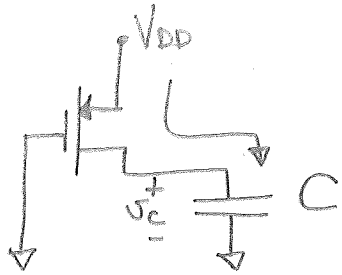 VDD
+
υc
-
C